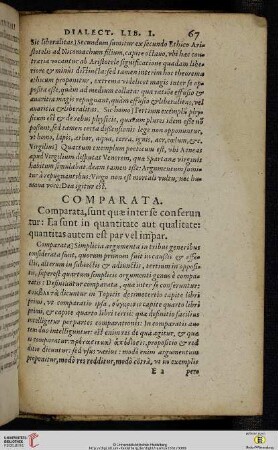 DIALECT. LIB. I. 67
Sic liberalitas) Secundum sumitur ex secundo Ethico Aris
stotelis ad Nicomachum filium, capite octauo, vbi hæc con
traria vocantur ab Aristotele significatione quadam libe
riore & minùs distincta: sed tamen interim hoc theorema
ethicum proponitur, extrema videlicet magis inter se op
posita esse, quàm ad medium collata: qua ratione effusio &
auaritia magis repugnant, quàm effusio & liberalitas, vel
auaritia & liberalitas. Sic homo) Tertium exempli phy
sicum est & de rebus physicis, quarum plures idem esse no
possunt, sed tamen certa dissensionis lege non opponuntur,
vt homo, lapis, arbor, aqua, terra, ignis, aer, cœlum, & c.
Virgilius) Quartum exemplum poëticum est, vbi Aeneas
apud Virgilium disputat Venerem, quæ Spartanæ virginis
habitum simulabat, deam tamen esse: Argumentum sumi
tur à repugnantibus: Virgo non est mortali vultu, nec hu
mana voce: Dea igitur est.
COMPARATA.
Comparata, sunt quæ inter se conferun
tur: Ea sunt in quantitate aut qualitate:
quantitas autem est par vel impar.
Comparata) Simplicia argumenta in tribus generibus
considerata sunt, quorum primum fuit in caussis & effe
ctis, alterum in subiectis & adiunctis, tertium in opposi
tis, superest quartum simplicis argumenti genus è compa
ratis: Definiuntur comparata, quæ inter se conferuntur:
dicuntur ab Topicis decimotertio capite libri
primi, vt comparatio ipsa, capite quarto libri
primi, & capite quarto libri tertii: quæ definitio facilius
intelligetur per partes comparationis: In comparatis au
tem duo intelliguntur
ista comparatur propositio & red
ditio dicuntur: sed vsus varius: modò enim argumentum
proponitur, modò res redditur, modò cōtrà, vt in exemplis
E 2 pro
UNIVERSITÄTS-
BIBLIOTHEK
HEIDELBERG
© Universitätsbibliothek Heidelberg